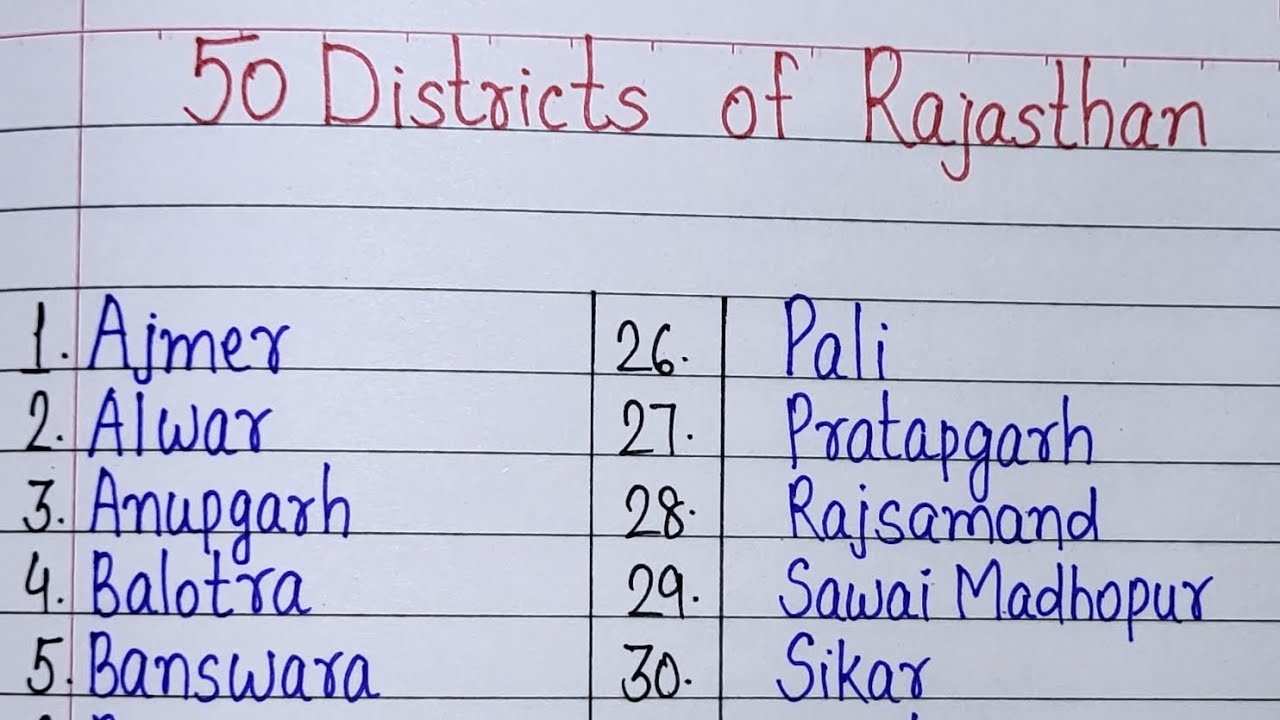 50 Districts of Rajasthan
1. Ajmer 26. Pali
2. Alwar 27. Pratapgarh
3. Anupgarh 28. Rajsamand
4. Balotra 29. Sawai Madhopur
5. Banswara 30. Sikar